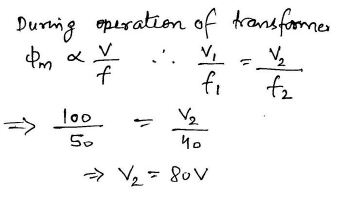 During operation of transformer
Φm ∝ V/f ∴ V₁/f₁ = V₂/f₂
⇒ 100/50 = V₂/40
⇒ V₂ = 80V